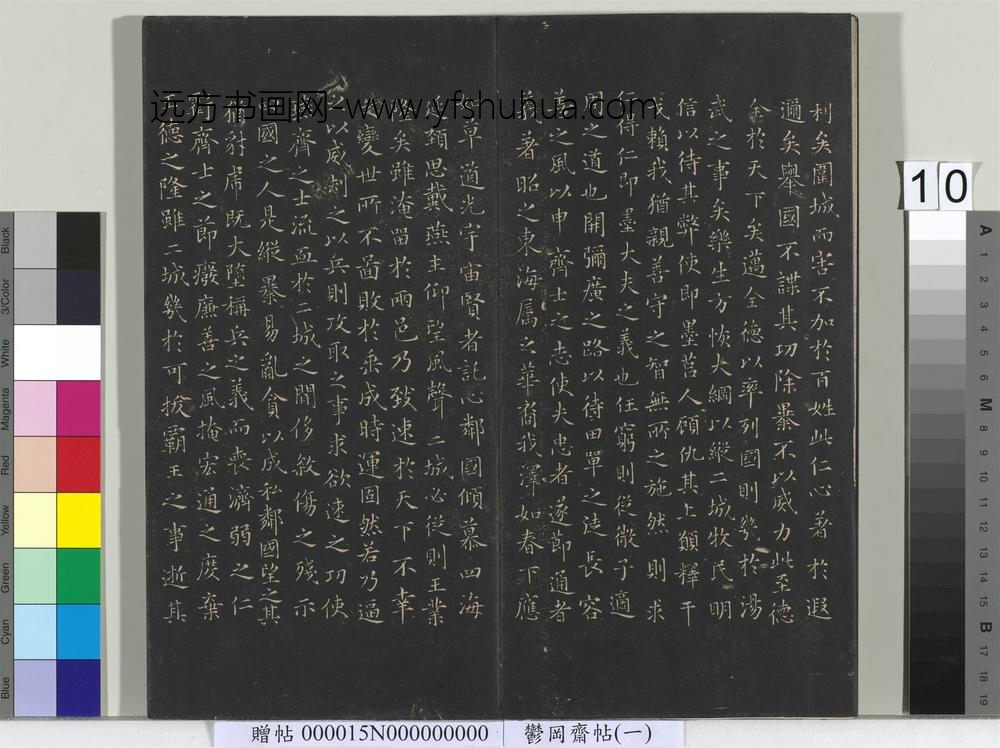 利矣圍城而害不加於百姓此仁心著於遐
邇矣舉國不謀其功除暴不以威力此至德
全於天下矣邁全德以率列國則幾於湯
武之事矣樂生方恢大綱以縱二城牧民明
信以待其弊使即墨莒人顧仇其上願釋干
戈賴我猶親善守之智無所之施然則求
仁得仁即墨大夫之義也任窮則從微子適
周之道也開彌廣之路以待田單之徒長容
善之風以申齊士之志使夫忠者遂節通者
義著昭之東海屬之華裔我澤如春下應
如草道光宇宙賢者託心鄰國傾慕四海
延頸思戴燕主仰望風聲二城必從則王業
隆矣雖淹留於兩邑乃致速於天下不幸
之變世所不啚敗於垂成時運固然若乃逼
之以威劫之以兵則攻取之事求欲速之功使
燕齊之士流血於二城之間侈殺傷之殘示
四國之人是縱暴易亂貪以成私鄰國望之其
猶豺虎既大墮稱兵之義而喪濟弱之仁
虧齊士之節癈廉善之風掩宏通之度棄
王德之隆雖二城幾於可拔霸王之事逝其
远方书画网-www.yfshuhua.com
10
Black
3/Color
White
Magenta
Red
Yellow
Green
Cyan
Blue
A
1
2
3
4
5
6
M
8
9
10
11
12
13
14
15
B
17
18
19
贈帖 000015N000000000
鬱岡齋帖(一)